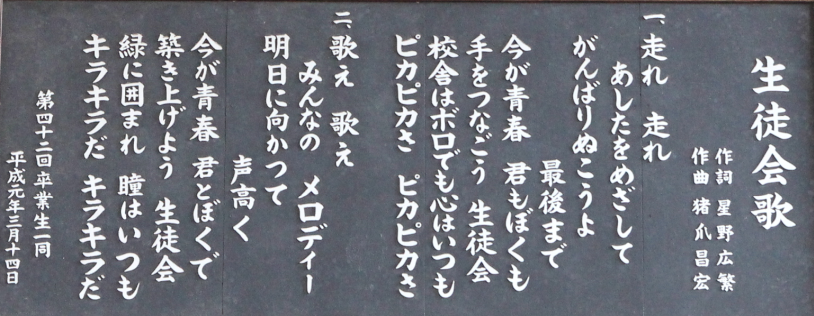 生徒会歌
作詞 星野広繁
作曲 猪爪昌宏
一、走れ 走れ
あしたをめざして
がんばりぬこうよ
最後まで
今が青春 君もぼくも
手をつなごう 生徒会
校舎はボロでも心はいつも
ピカピカさ ピカピカさ
二、歌え 歌え
みんなの メロディー
明日に向かつて
声高く
今が青春 君とぼくで
築き上げよう 生徒会
緑に囲まれ 瞳はいつも
キラキラだ キラキラだ
第四十二回卒業生一同
平成元年三月十四日